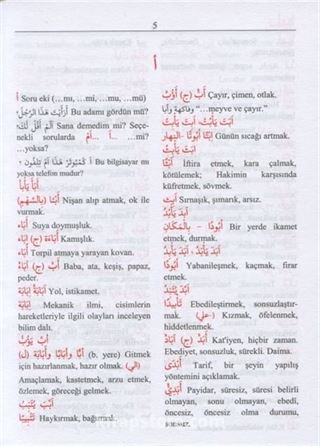 5
أ
أ Soru eki (…mı, …mi, …mu, …mü)
أَرَأَيْتَ هَذَا الرَّجُلَ؟ Bu adamı gördün mü?
أَلَمْ أَقُلْ لَكَ؟ Sana demedim mi? Seçe-
nekli sorularda أ... أَمْ ... …mı?
…yoksa?
أَ كُمْبُيُوتَر هَذَا أَمْ تِلِفُون ؟ Bu bilgisayar mı
yoksa telefon mudur?
أَبَأَ يَأْبَأُ
أَبْأً (بِالسَّهْمِ) Nişan alıp atmak, ok ile
vurmak.
أَبَاء Suya doymuşluk.
أَبَاء (ج) أَبَاءَة Kamışlık.
أَبَاء Torpil atmaya yarayan kovan.
أَب (ج) آبَاء Baba, ata, keşiş, papaz,
peder.
إِبَانَة Yol, istikamet.
إِبَانَة Mekanik ilmi, cisimlerin
hareketleriyle ilgili olayları inceleyen
bilim dalı.
أَبَّ يَؤُبُّ
أَبًّا وَأَبَابًا وَأَبَابَةً (ل) (b. yere) Gitmek
için hazırlanmak, hazır olmak. (إلى)
Amaçlamak, kastetmek, arzu etmek,
özlemek, göreceği gelmek.
Haykırmak, bağırmak.
أَبّ (ج) أَؤُبّ Çayır, çimen, otlak.
وفاكهة وأبّا "…meyve ve çayır."
أَبَتَ يَأْبِتُ أَبِتَ يَأْبَتُ
أَبْتًا أُبُوتًا - النهار Günün sıcağı artmak.
İftira etmek, kara çalmak,
kötülemek; Hakimin karşısında
küfretmek, sövmek.
Sırnaşık, şımarık, arsız.
أَبَدَ يَأْبِدُ
أُبُودًا - بِالْمَكَانِ Bir yerde ikamet
etmek, durmak.
أَبَدَ يَأْبُدُ ، أَبِدَ يَأْبَدُ
أُبُودًا Yabanileşmek, kaçmak, firar
etmek.
أَبَّدَ يُؤَبِّدُ
تَأْبِيدًا Ebedileştirmek, sonsuzlaştır-
mak. (على) Kızmak, öfelenmek,
hiddetlenmek.
أَبَد (ج) آبَاد Kat'iyen, hiçbir zaman.
Ebediyet, sonsuzluk, sürekli. Daima.
Tarif, bir şeyin yapılış
yöntemini açıklamak.
أَبَدِيّ Payidar, süresiz, süresi belirli
olmayan, sonu olmayan, ebedî,
öncesiz, öncesiz olma durumu,
sonsuz.